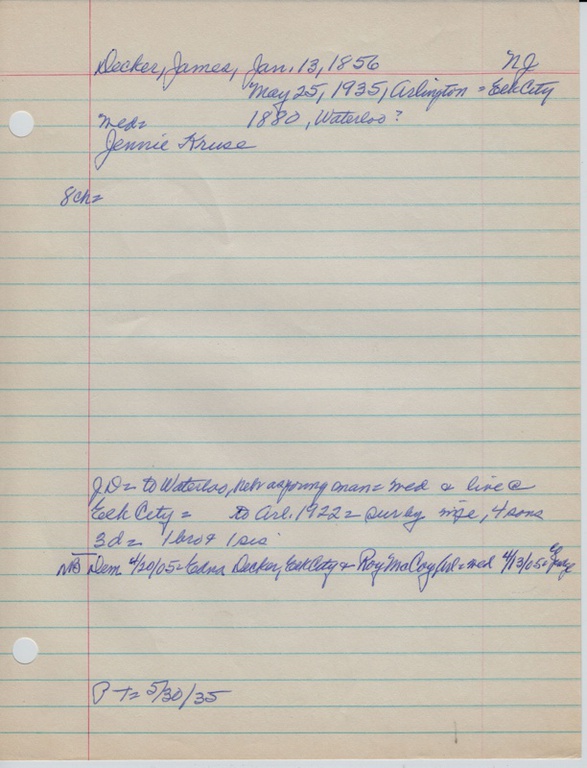 Decker, James, Jan. 13, 1856 NJ
May 25, 1935, Arlington = Elk City
med= 1880, Waterloo?
Jennie Kruse
8 ch=
J D= to Waterloo, Neb as young man= med & live @
Elk City = to Arl. 1922= surby wife, 4 sons
3 d= 1 bro & 1 sis
NB Dem 4/20/05= Edna Decker, Elk City & Roy McCoy Arl= med 4/13/05=
P T= 5/30/35